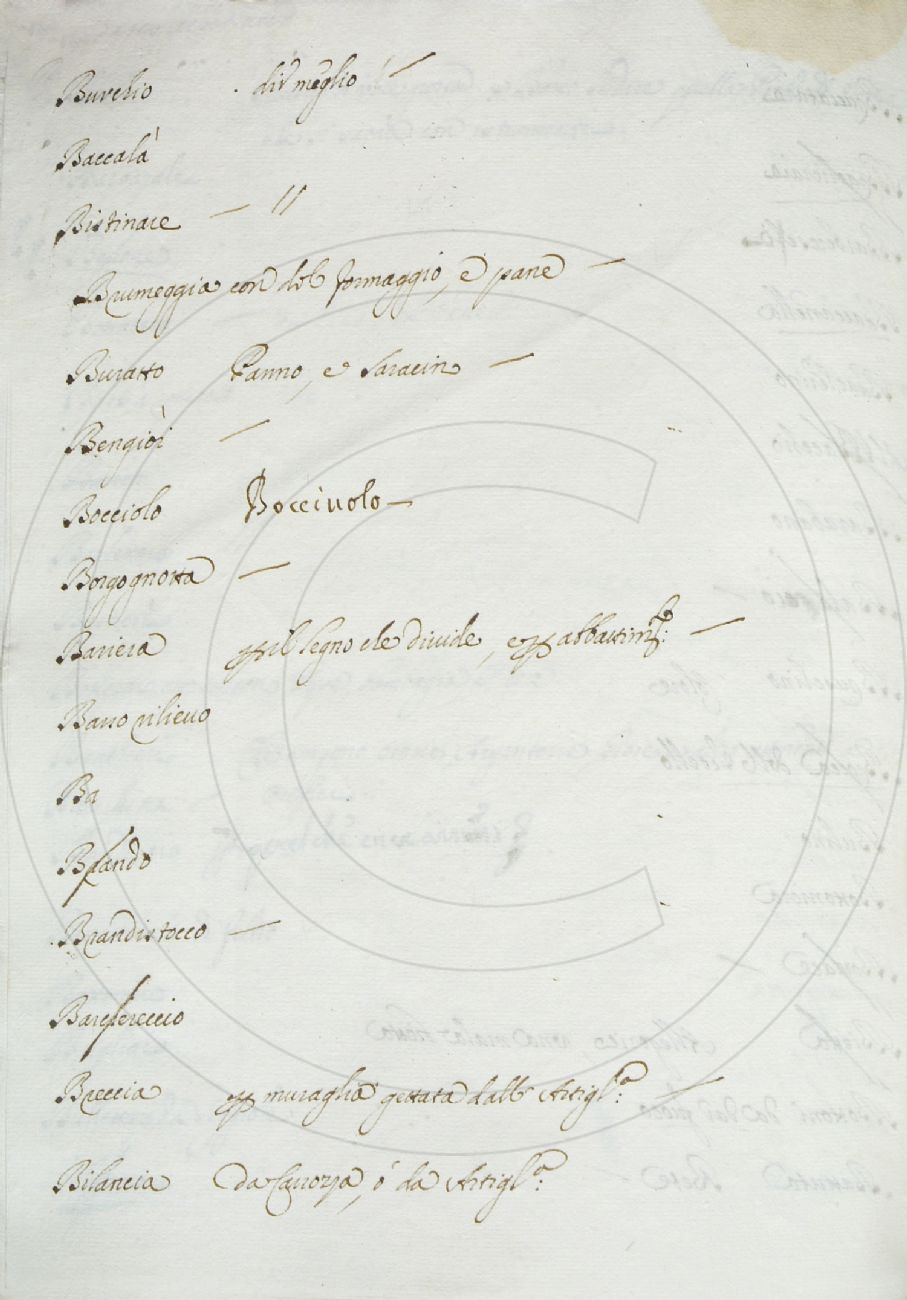 Burchio dir meglio —
Baccalà
Bistinace — //
Brumeggia con del formaggio, e pane —
Buratto Panno, e Saracin —
Bengiòi —
Bocciolo Bocciuolo —
Borgognotta —
Bariera p il legno che divide, e p abbattim.to: —
Basso rilieuo
Ba
Brando
Brandistocco —
Barchereccio
Breccia p muraglia gettata dall' Artigl.a: —
Bilancia Da Carozza, ò da Artigl.a: